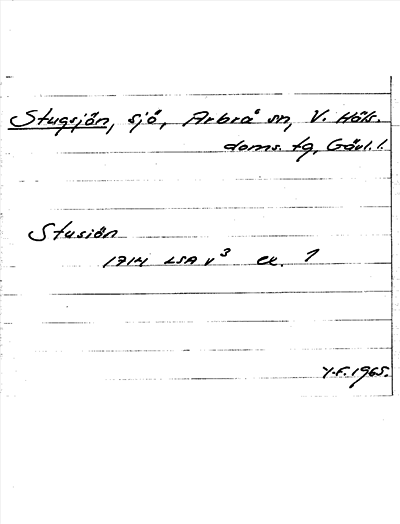 Stugsjön, sjö, Arbrå sn, V. Häls.
doms. tg, Gävl. l.
Stusiön
1714 LSA v³ ex. 1
Y.F. 1965.